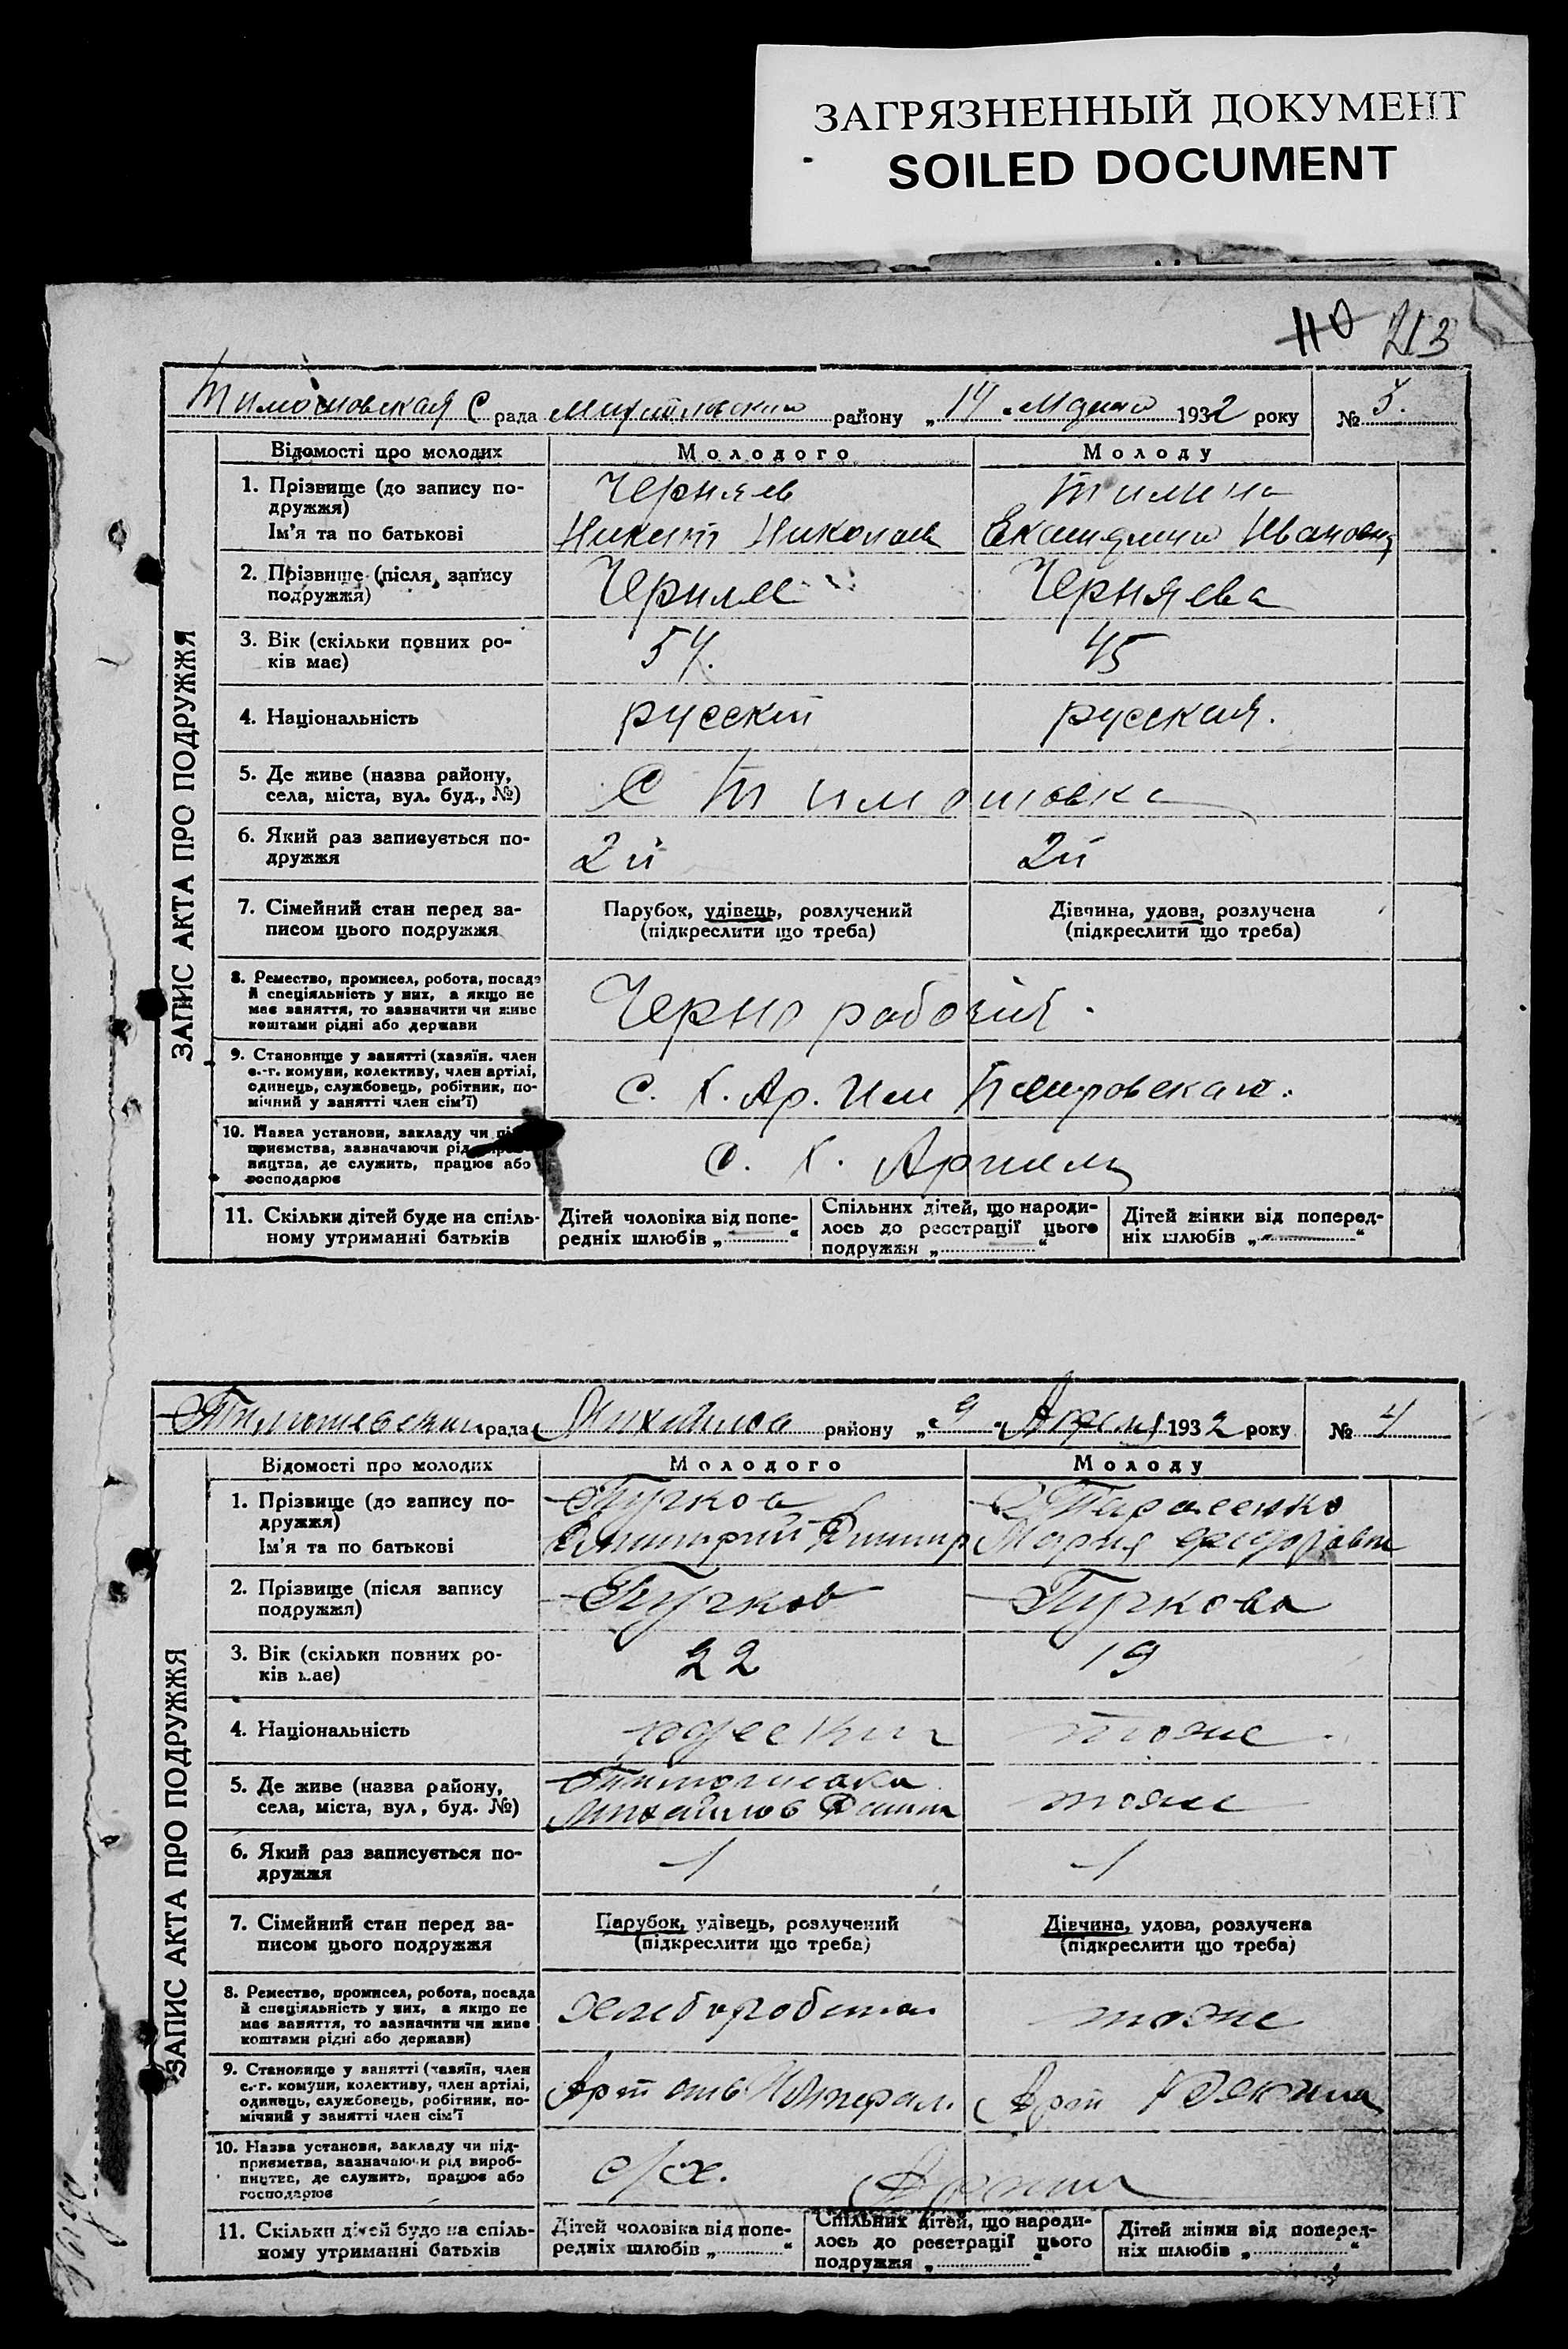 ЗАГРЯЗНЕННЫЙ ДОКУМЕНТ
SOILED DOCUMENT
110 213
Тимошовская С рада района району „14“ 1932 року № 3.
ЗАПИС АКТА ПРО ПОДРУЖЖЯ
Відомості про молодих Молодого Молоду
1. Прізвище (до запису по-
дружжя)
Черняев Тимина
Ім'я та по батькові Никит Николаев Екатерина Ивановна
2. Прізвище (після запису
подружжя)
Черняе Черняева
3. Вік (скільки повних ро-
ків має)
57. 45
4. Національність русский русская.
5. Де живе (назва району,
села, міста, вул. буд., №)
С Тимошовка
6. Який раз записується по-
дружжя
2й 2й
7. Сімейний стан перед за-
писом цього подружжя
Парубок, удівець, розлучений
(підкреслити що треба)
Дівчина, удова, розлучена
(підкреслити що треба)
8. Ремество, промисел, робота, посада
й спеціяльність у них, а якщо не
має заняття, то зазначити чи живе
коштами рідні або держави
Чернорабочий.
9. Становище у занятті (хазяїн, член
с.-г. комуни, колективу, член артілі,
одинець, службовець, робітник, по-
мічний у занятті член сім'ї)
С. Х. Ар. Им Петровскаго.
10. Назва установи, закладу чи під-
приємства, зазначаючи рід вироб-
ництва, де служить, працює або
господарює
С. Х. Артель
11. Скільки дітей буде на спіль-
ному утриманні батьків
Дітей чоловіка від попе-
редніх шлюбів „ “
Спільних дітей, що народи-
лось до реєстрації цього
подружжя „ “
Дітей жінки від поперед-
ніх шлюбів „ “
рада району „9“ Апреля 1932 року № 4
ЗАПИС АКТА ПРО ПОДРУЖЖЯ
Відомості про молодих Молодого Молоду
1. Прізвище (до запису по-
дружжя)
Пучков Тарасенко
Ім'я та по батькові Дмитрий Дмитр Мария Федоровн
2. Прізвище (після запису
подружжя)
Пучков Пучкова
3. Вік (скільки повних ро-
ків має)
22 19
4. Національність русский тоже
5. Де живе (назва району,
села, міста, вул, буд. №)
Тимошовка
Михайлов тоже
6. Який раз записується по-
дружжя
1 1
7. Сімейний стан перед за-
писом цього подружжя
Парубок, удівець, розлучений
(підкреслити що треба)
Дівчина, удова, розлучена
(підкреслити що треба)
8. Ремество, промисел, робота, посада
й спеціяльність у них, а якщо не
має заняття, то зазначити чи живе
коштами рідні або держави)
тоже
9. Становище у занятті (хазяїн, член
с.-г. комуни, колективу, член артілі,
одинець, службовець, робітник, по-
мічний у занятті член сім'ї
Арт Арт
10. Назва установи, закладу чи під-
приємства, зазначаючи рід вироб-
ництва, де служить, працює або
господарює
с/х.
11. Скільки дітей буде на спіль-
ному утриманні батьків
Дітей чоловіка від попе-
редніх шлюбів „ “
Спільних дітей, що народи-
лось до реєстрації цього
подружжя „ “
Дітей жінки від поперед-
ніх шлюбів „ “